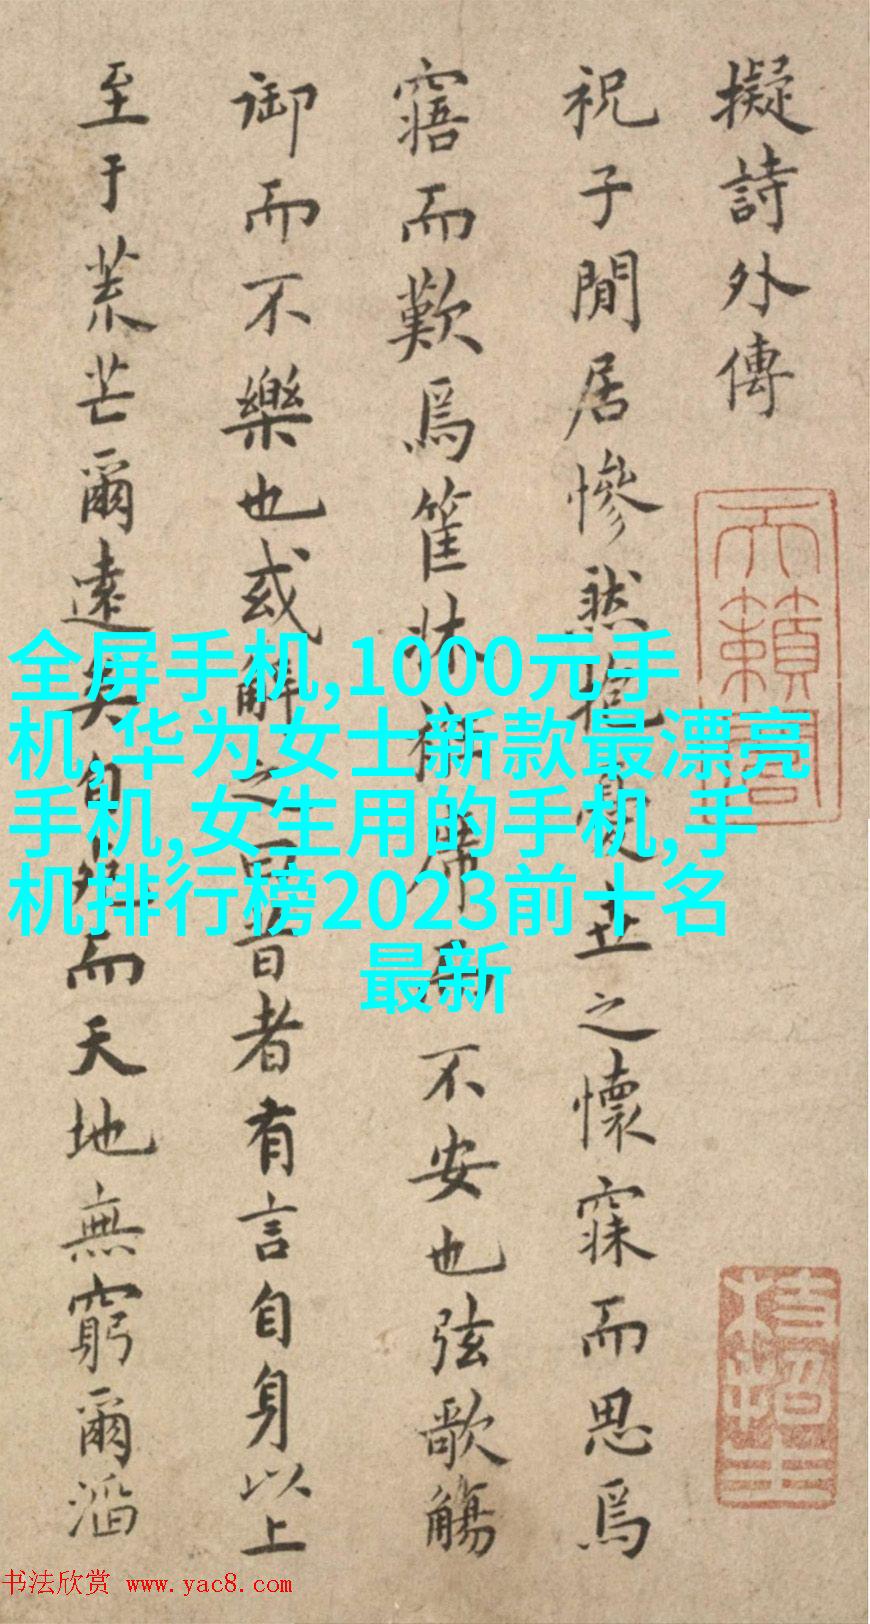 擬詩外傳
天籟閣
枝指生
祝子閒居慘然抱憂世之懷寐而思焉
寤而歎焉筐牀衽席居不安也弦歌觴
御而不樂也或解之曰昔者有言自身以上
至于荒芒爾遠矣自死而天地無窮爾滔
全屏手机,1000元手
机,华为女士新款最漂亮
手机,女生用的手机,手
机排行榜2023前十名
最新
书法欣赏 www.yac8.com